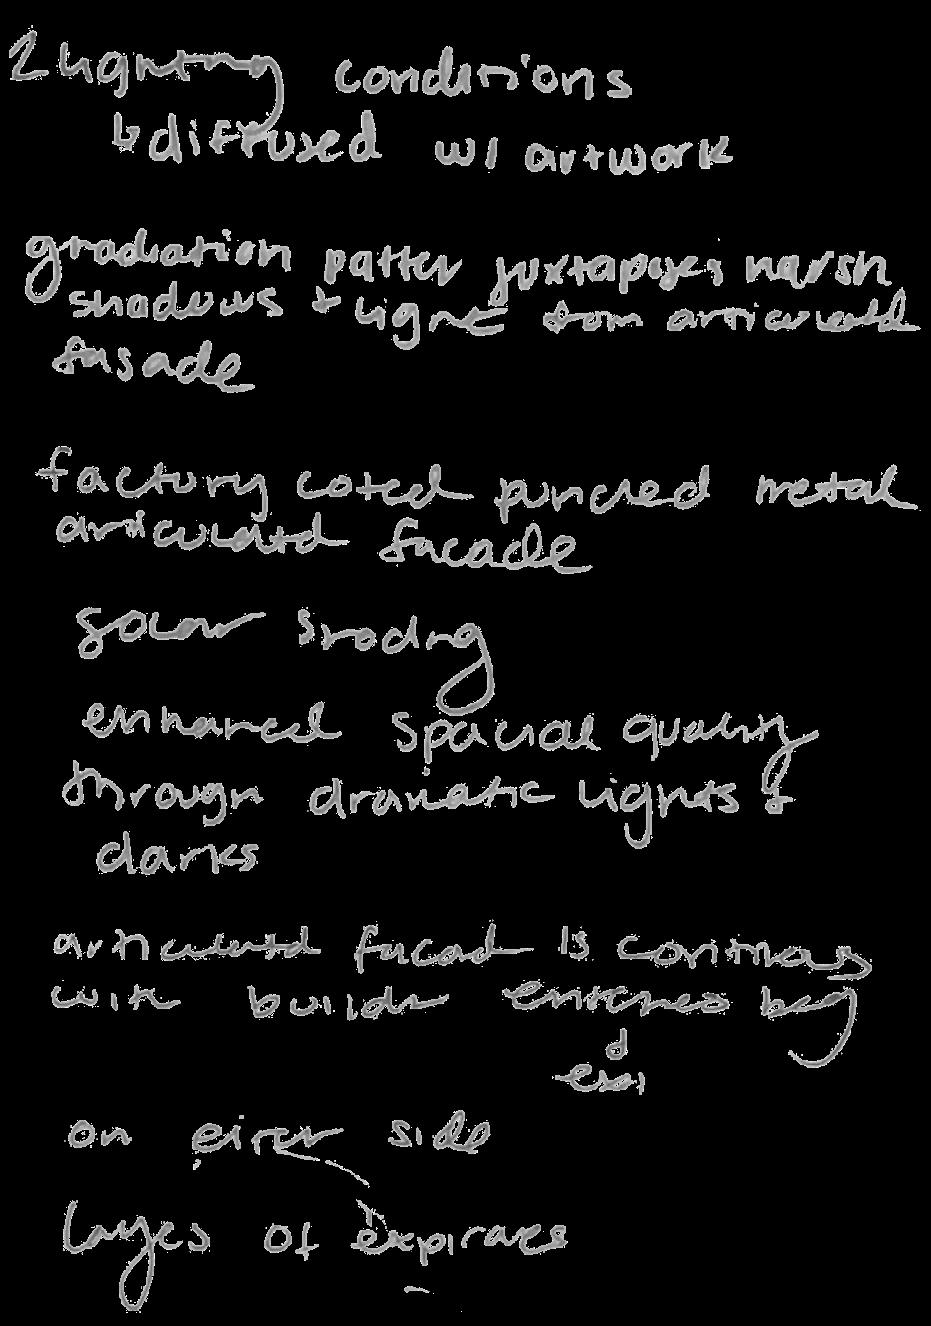 2 lighting conditions
↳ diffused w/ artwork
gradiation patter juxtaposes harsh
shadows + light from articulated
fasade
factory coted punched metal
articulatd facade
solar shading
enhanced spacial quality
through dramatic lights +
darks
articulatd facad is
with enriches
d
on either side
layes of